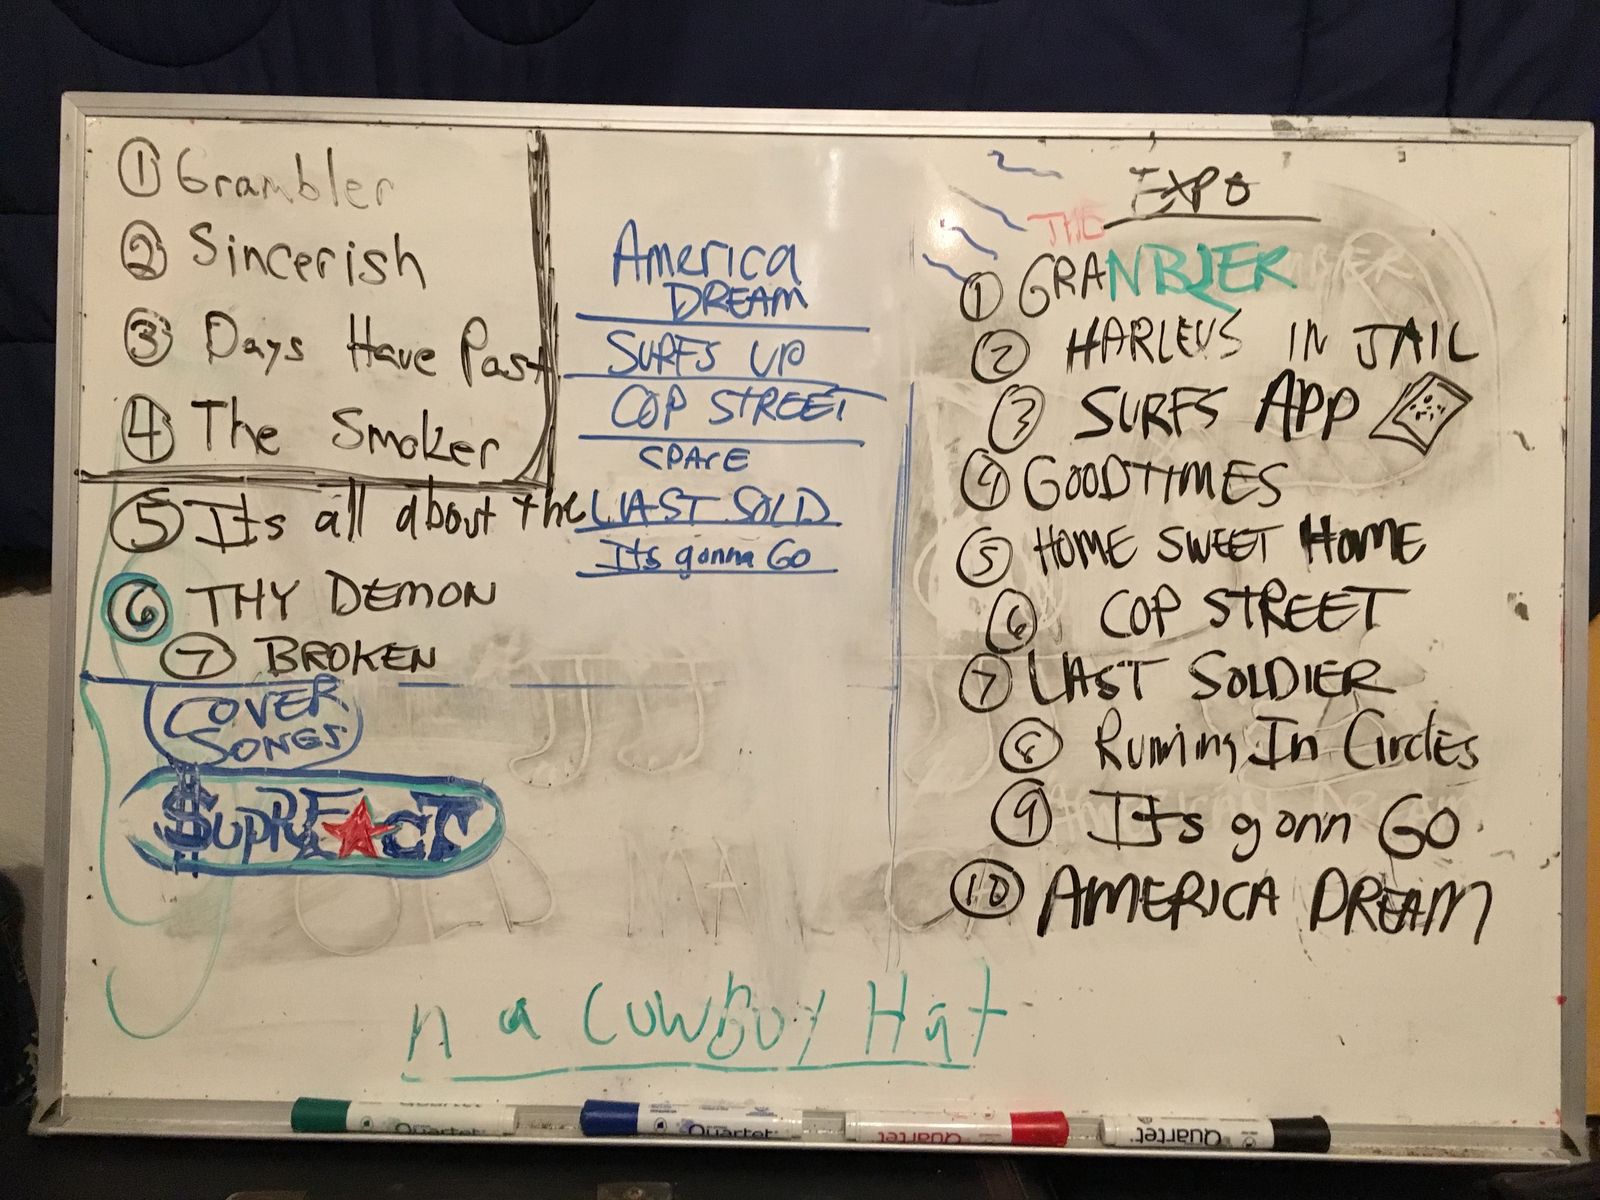 ① Grambler
② Sincerish
③ Days Have Past
④ The Smoker
⑤ Its all about the
⑥ THY DEMON
⑦ BROKEN
COVER
SONGS
$UPRE★CT
America
DREAM
SURFS UP
COP STREET
SPArE
LAST SOLD
Its gonna Go
EXPO
THE
① GRANBLER
② HARLEYS IN JAIL
③ SURFS APP
④ GOODTIMES
⑤ HOME SWEET HOME
⑥ COP STREET
⑦ LAST SOLDIER
⑧ Running In Circles
⑨ Its gonn GO
⑩ AMERICA DREAM
OLD MAN
n a COWBOY HAt
Quartet
Quartet
Quartet
Quartet